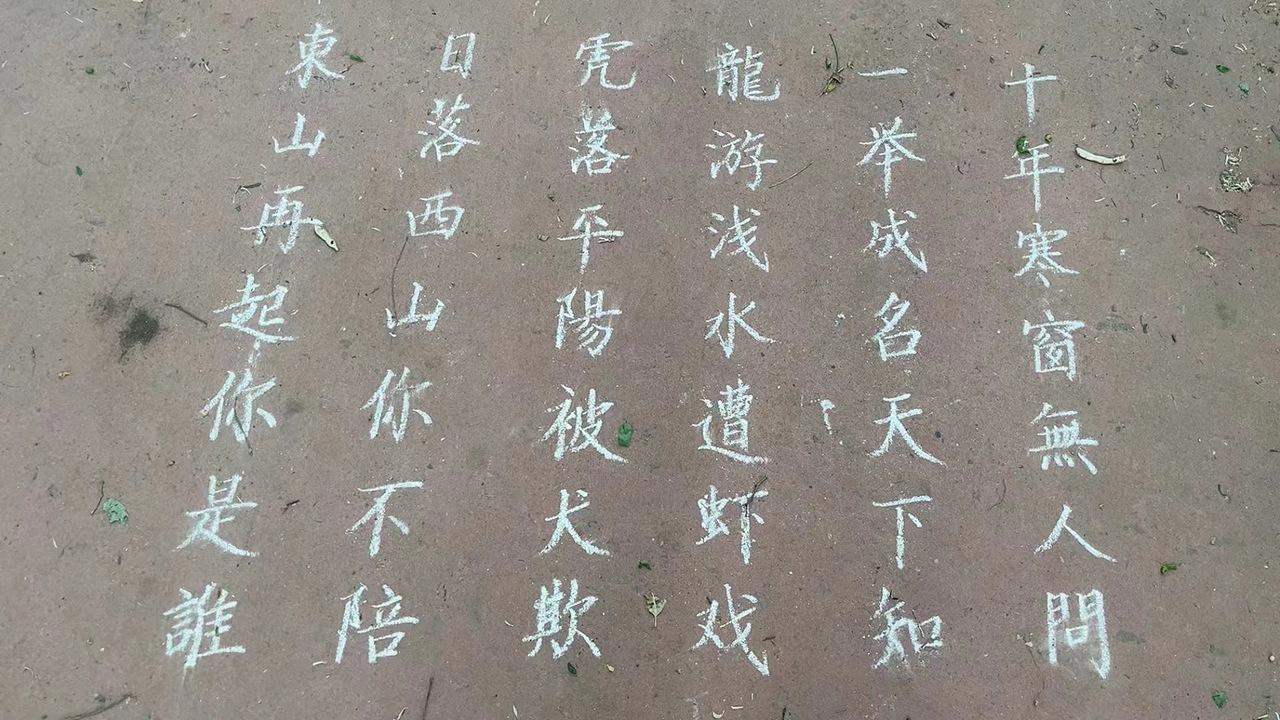 十年寒窗無人問
一举成名天下知
龍游浅水遭虾戏
虎落平陽被犬欺
日落西山你不陪
東山再起你是誰